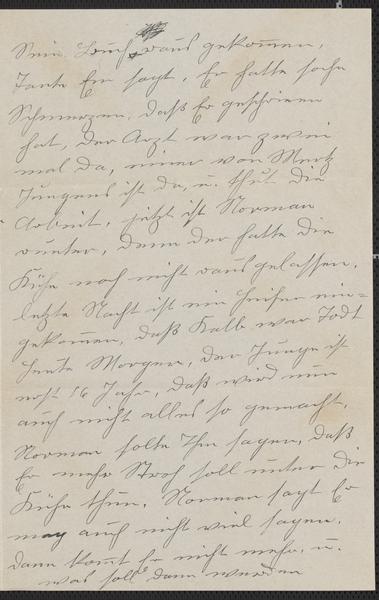 Sein Bruch raus gekommen,
Tante Em sagt, Er hatte solche
Schmerzen, daß Er geschrieen
hat, der Arzt war zwei
mal da, einer von Mertz
Jungens ist da, u. thut die
Arbeit, jetzt ist Norman
runter, denn der hatte die
Kühe noch nicht rausgelassen,
letzte Nacht ist ein Heifer ein=
gekommen, daß Kalb war Todt
heute Morgen, der Junge ist
erst 16 Jahr, daß wird nun
auch nicht alles so gemacht,
Norman sollte Ihm sagen, daß
Er mehr Stroh soll unter die
Kühe thun, Norman sagt Er
may auch nicht viel sagen,
dann kommt Er nicht mehr, u.
was soll dann werden